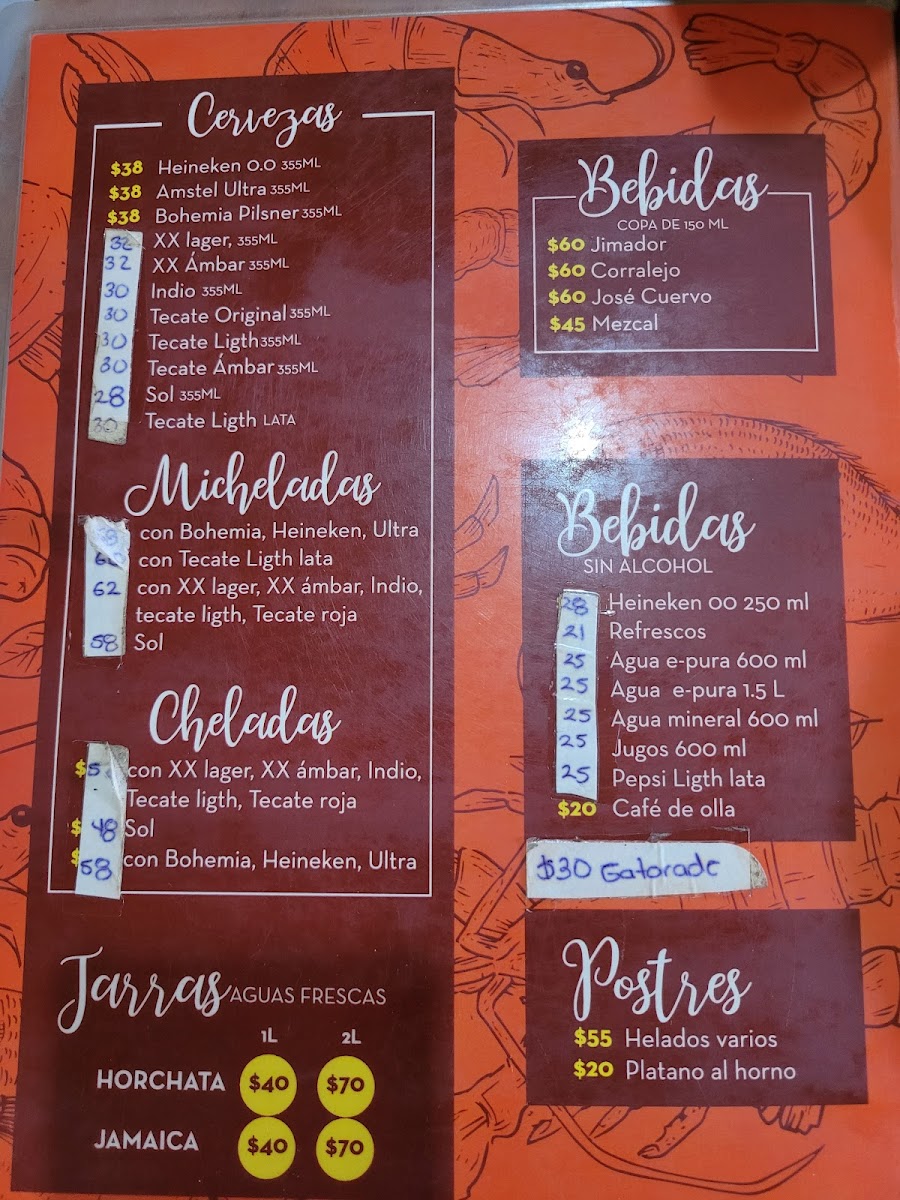 Cervezas
$38 Heineken 0.0 355ML
$38 Amstel Ultra 355ML
$38 Bohemia Pilsner 355ML
32 XX lager, 355ML
32 XX Ámbar 355ML
30 Indio 355ML
30 Tecate Original 355ML
30 Tecate Ligth 355ML
30 Tecate Ámbar 355ML
28 Sol 355ML
30 Tecate Ligth LATA
Micheladas
con Bohemia, Heineken, Ultra
con Tecate Ligth lata
62 con XX lager, XX ámbar, Indio,
tecate ligth, Tecate roja
58 Sol
Cheladas
con XX lager, XX ámbar, Indio,
Tecate ligth, Tecate roja
$48 Sol
58 con Bohemia, Heineken, Ultra
Jarras AGUAS FRESCAS
1L 2L
HORCHATA $40 $70
JAMAICA $40 $70
Bebidas
COPA DE 150 ML
$60 Jimador
$60 Corralejo
$60 José Cuervo
$45 Mezcal
Bebidas
SIN ALCOHOL
28 Heineken 00 250 ml
21 Refrescos
25 Agua e-pura 600 ml
25 Agua e-pura 1.5 L
25 Agua mineral 600 ml
25 Jugos 600 ml
25 Pepsi Ligth lata
$20 Café de olla
$30 Gatorade
Postres
$55 Helados varios
$20 Platano al horno